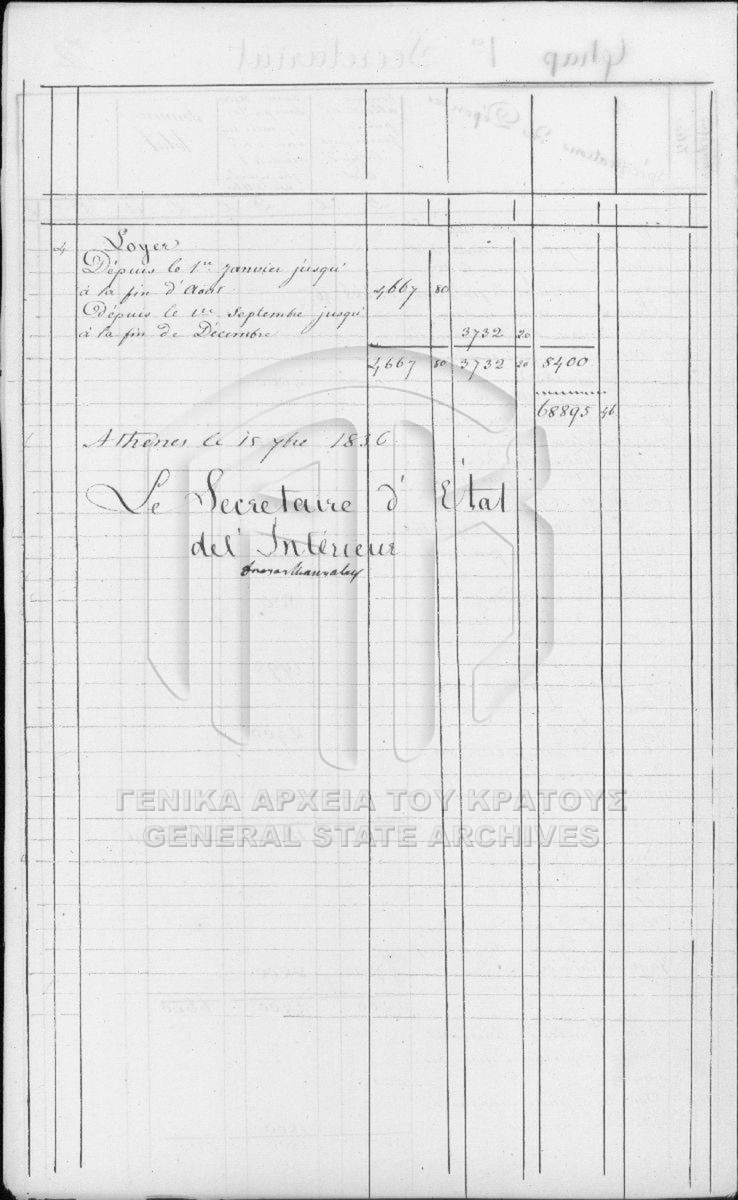 4 Loyer
Dépuis le 1er Janvier jusqu'
à la fin d'Août 4667 80
dépuis le 1er Septembre jusqu'
à la fin de Décembre 3732 20
4667 80 3732 20 8400
68895 46
Athènes le 15 7bre 1836
Le Secretaire d'État
del'Intérieur
ΓΕΝΙΚΑ ΑΡΧΕΙΑ ΤΟΥ ΚΡΑΤΟΥΣ
GENERAL STATE ARCHIVES